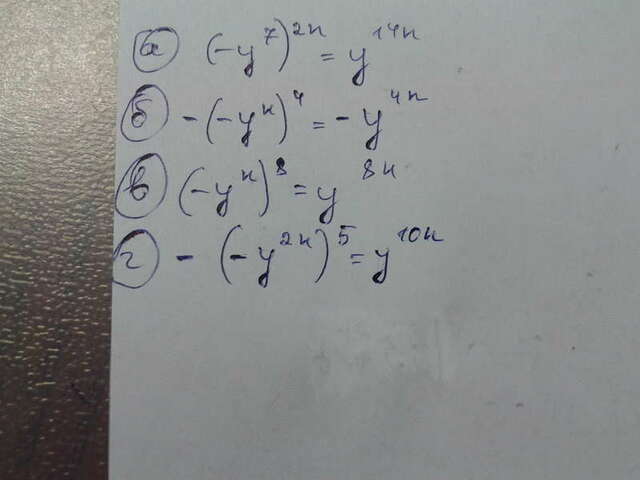 а) (-y⁷)²ⁿ = y¹⁴ⁿ
б) -(-yⁿ)⁴ = -y⁴ⁿ
в) (-yⁿ)⁸ = y⁸ⁿ
г) -(-y²ⁿ)⁵ = y¹⁰ⁿ